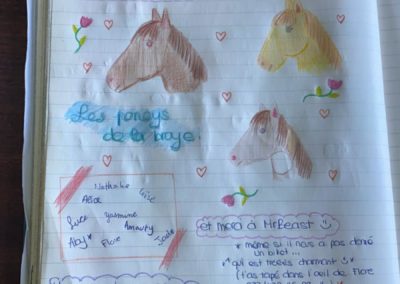 Les poneys
de la braye.
Nathalie
Alice Lise
Luce Yasmine
Amaury
Aby Flore Jade
et merci à MrBeast
* même si il nous a pas donné
un billet...
* qui est treeès charmant
(t'as tapé dans l'oeil de Flore